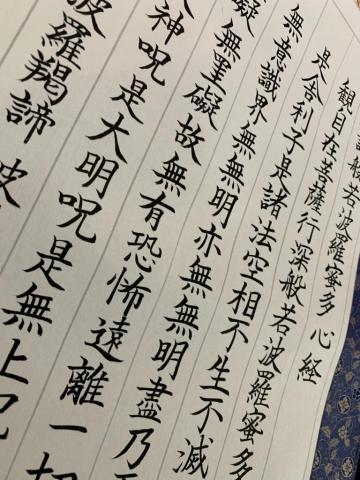 般若波羅蜜多心経
観自在菩薩行深般若波羅蜜多
是舎利子是諸法空相不生不滅
無意識界無無明亦無無明盡乃
礙無罣礙故無有恐怖遠離一切
神呪是大明呪是無上呪
波羅羯諦 波